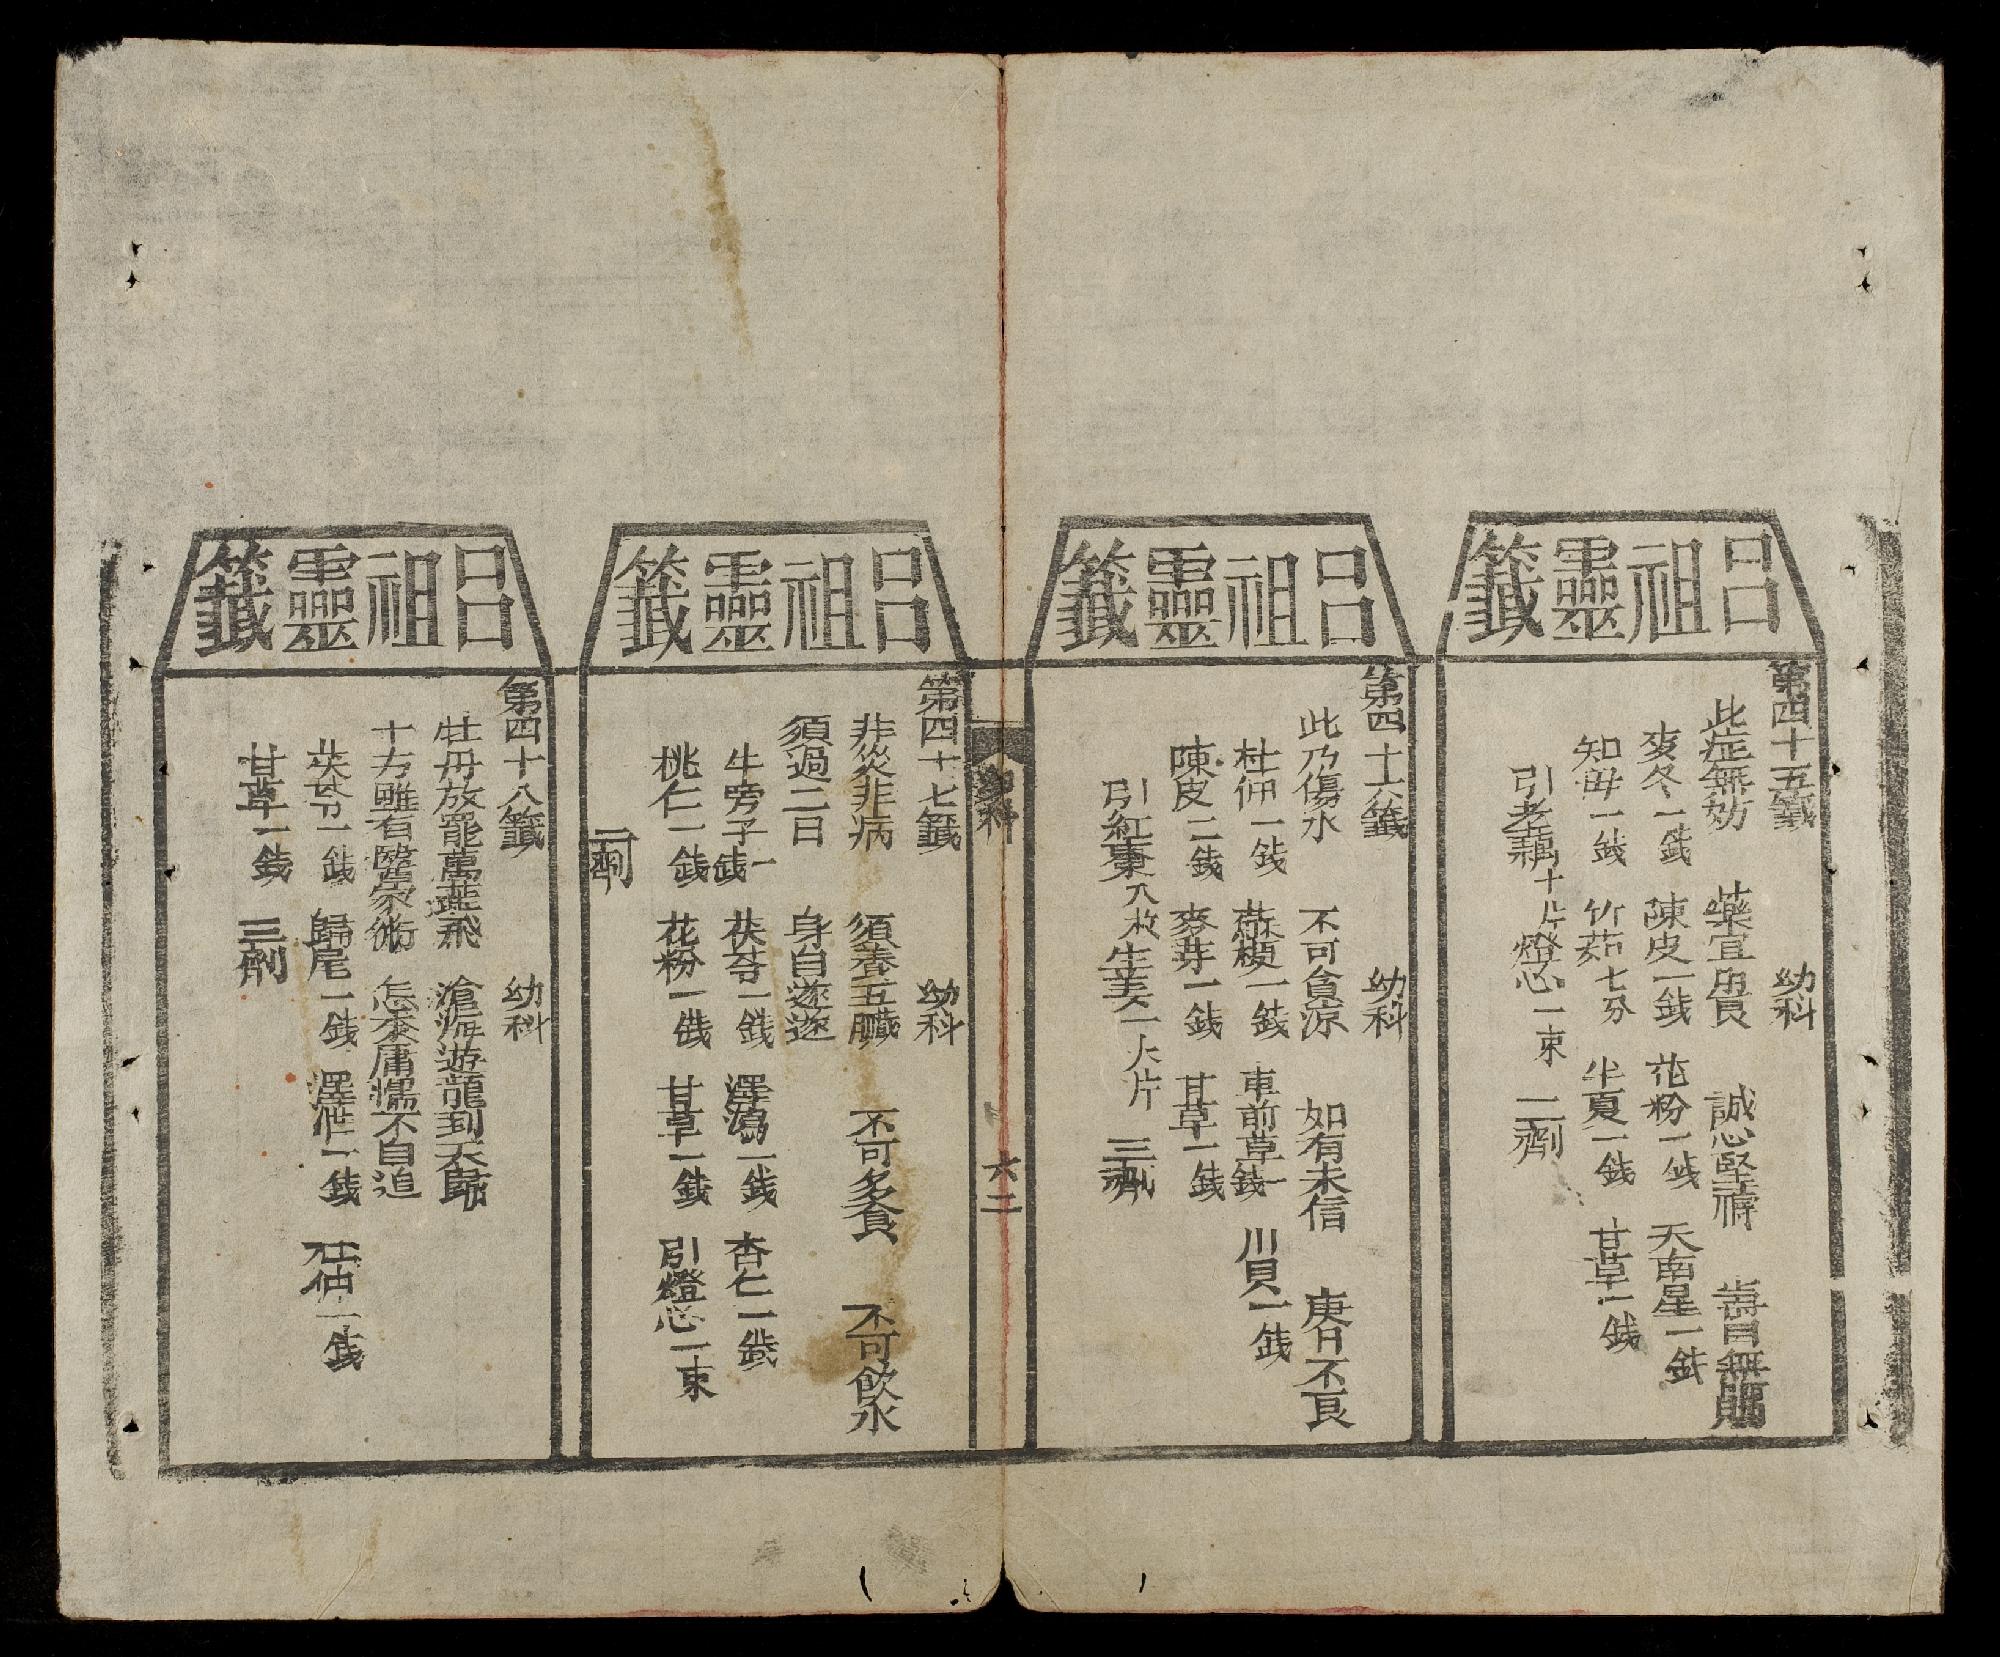 呂祖靈籤
第四十五籤 幼科
此症無妨 藥宜用良 誠心堅禱 壽日無賜
麥冬一錢 陳皮一錢 花粉一錢 天南星一錢
知毋一錢 竹茹七分 半夏一錢 甘草一錢
引老藕十片燈心一束 二劑
呂祖靈籤
第四十六籤 幼科
此乃傷水 不可貪凉 如有未信 庚日不良
杜仲一錢 蘇梗一錢 車前草一錢 川貝一錢
陳皮二錢 麥芽一錢 甘草一錢
引紅棗八枚生姜一大片 三劑
幼科 六二
呂祖靈籤
第四十七籤 幼科
非災非病 須養五臟 不可多食 不可飲水
須過二日 身自遂遂
牛旁子一錢 茯苓一錢 澤瀉一錢 杏仁一錢
桃仁一錢 花粉一錢 甘草一錢 引燈心一束
二劑
呂祖靈籤
第四十八籤 幼科
牡丹放罷萬燕飛 滄海遊龍到天歸
十方雖有醫家術 怎奈庸懦不自追
茯苓一錢 歸尾一錢 澤泄一錢 杜仲一錢
甘草一錢 三劑